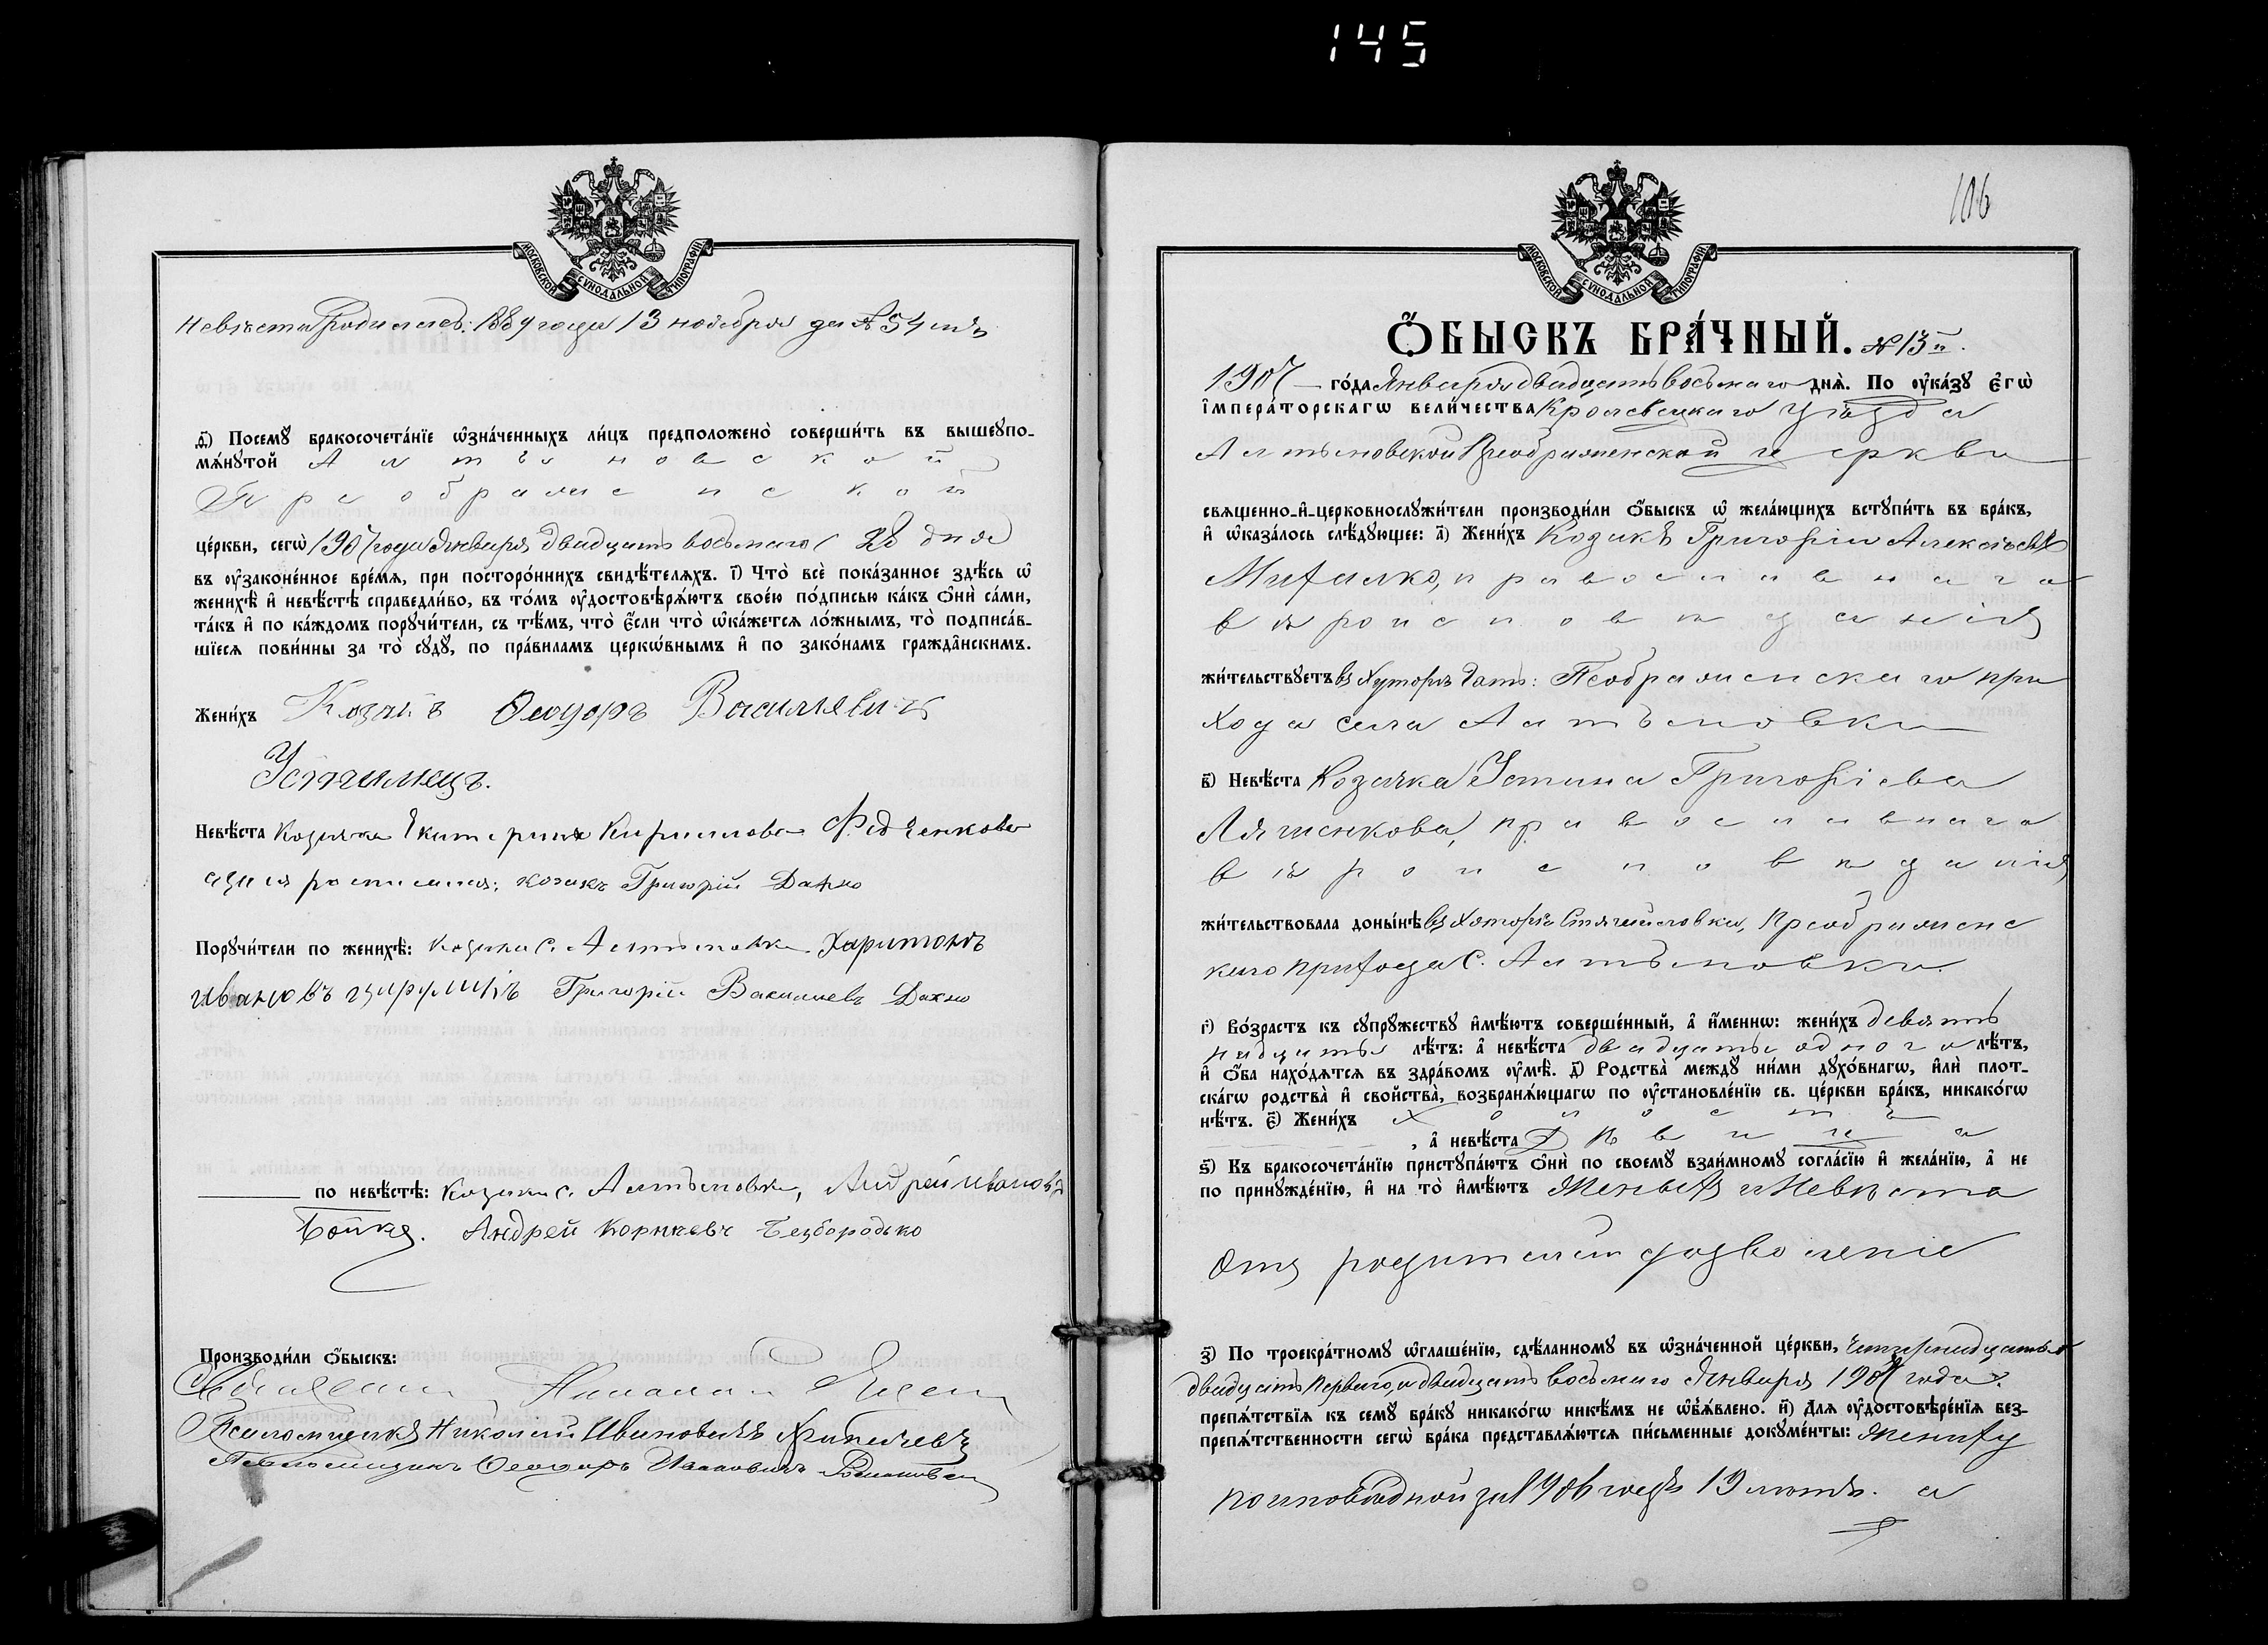 145
МОСКОВСКОЙ СѴНОДАЛЬНОЙ ТИПОГРАФІИ
родилась: 1884 года 13 ноября за № 54
д҃і) Посемꙋ̀ бракосочета́нїе ѡ҆зна́ченныхъ ли́цъ предположено̀ соверши́ть въ вышеꙋпо-
мѧ́нꙋтой Алтыновской
Преображенской
це́ркви, сегѡ̀ 1907 года Января двадцать восьмаго 28 дня
въ ᲂу҆законе́нное вре́мѧ, при посторо́ннихъ свидѣ́телѧхъ. і҃) Что̀ всѐ пока́занное здѣ́сь ѡ҆
женихѣ̀ и҆ невѣ́стѣ справедли́во, въ то́мъ ᲂу҆достовѣрѧ́ютъ свое́ю по́дписью ка́къ ѻ҆нѝ са́ми,
та́къ и҆ по ка́ждомъ порꙋчи́тели, съ тѣ́мъ, что̀ є҆́сли что̀ ѡ҆ка́жетсѧ ло́жнымъ, то̀ подписа́в-
шїесѧ пови́нны за то̀ сꙋдꙋ̀, по пра́виламъ церкѡ́внымъ и҆ по зако́намъ гражда̂нскимъ.
Жени́хъ Козакъ Ѳеодоръ Васильевичъ
Устименъ.
Невѣ́ста Козачка Екатерина Кириллова Федченкова
козакъ Григорій Дахно
Порꙋчи́тели по женихѣ̀: козаки с. Алтыновки Харитонъ
Ивановъ Григорій Васильевъ Дахно
по невѣ́стѣ: Козаки с. Алтыновки, Андрей Ивановъ
Бойко. Андрей Корнѣевъ Безбородько
Производи́ли ѻ҆́быскъ:
Священникъ
Псаломщикъ Николай Ивановичъ
Псаломщикъ Ѳеодоръ Ивановичъ
106
МОСКОВСКОЙ СѴНОДАЛЬНОЙ ТИПОГРАФІИ
Ѻ҆́БЫСКЪ БРА́ЧНЫЙ. № 13й.
1907 го́да Января двадцать восьмаго днѧ̀. По ᲂу҆ка́зꙋ є҆гѡ̀
і҆мпера́торскагѡ вели́чества Кролевецкаго уѣзда
Алтыновской Преображенской церкви
свѧщенно-и҆-церковнослꙋжи́тели производи́ли ѻ҆́быскъ ѡ҆ жела́ющихъ встꙋпи́ть въ бра́къ,
и҆ ѡ҆каза́лось слѣ́дꙋющее: а҃) Жени́хъ Козакъ Григорій Алексѣевъ
Михалко, православнаго
вѣроисповѣданія
жи́тельствꙋетъ въ Хуторѣ Преображенскаго при
хода села Алтыновки
в҃) Невѣ́ста Козачка Устина Григоріева
Ляшенкова, православнаго
вѣроисповѣданія
жи́тельствовала доны́нѣ въ Хуторѣ Преображенс
каго прихода с. Алтыновки.
г҃) Во́зрастъ къ сꙋпрꙋ́жествꙋ и҆мѣ́ютъ соверше́нный, а҆ и҆́меннѡ: жени́хъ девять
надцать лѣ́тъ: а҆ невѣ́ста двадцать одного лѣ́тъ,
и҆ ѻ҆́ба нахо́дѧтсѧ въ здра́вомъ ᲂу҆мѣ̀. д҃) Родства̀ междꙋ̀ ни́ми дꙋхо́внагѡ, и҆лѝ плот-
ска́гѡ родства̀ и҆ свойства̀, возбранѧ́ющагѡ по ᲂу҆становле́нїю св. це́ркви бра́къ, никако́гѡ
нѣ́тъ. є҃) Жени́хъ Холостъ
, а҆ невѣ́ста Дѣвица
ѕ҃) Къ бракосочета́нїю пристꙋпа́ютъ ѻ҆нѝ по своемꙋ̀ взаи́мномꙋ согла́сїю и҆ жела́нїю, а҆ не
по принꙋжде́нїю, и҆ на то̀ и҆мѣ́ютъ Женихъ и Невѣста
отъ родителей дозволеніе
з҃) По троекра́тномꙋ ѡ҆глаше́нїю, сдѣ́ланномꙋ въ ѡ҆зна́ченной це́ркви, четырнадцатаго
двадцать перваго, и двадцать восьмаго Января 1907 года.
препѧ́тствїѧ къ семꙋ̀ бра́кꙋ никако́гѡ никѣ́мъ не ѡ҆б̾ѧ́влено. и҃) Длѧ ᲂу҆достовѣре́нїѧ без-
препѧ́тственности сегѡ̀ бра́ка представлѧ́ютсѧ пи́сьменные докꙋме́нты: Жениху
по исповѣдной за 1906 годъ 19 лѣтъ. а